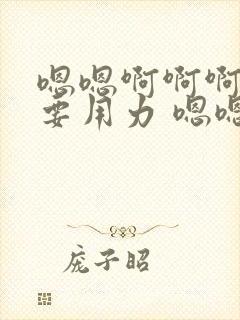 嗯嗯啊啊啊
要用力 嗯嗯
庞子昭